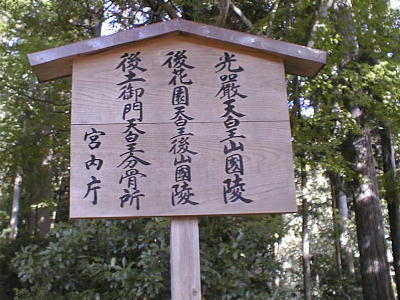 光嚴天皇山國陵
後花園天皇後山國陵
後土御門天皇分骨所
宮内庁